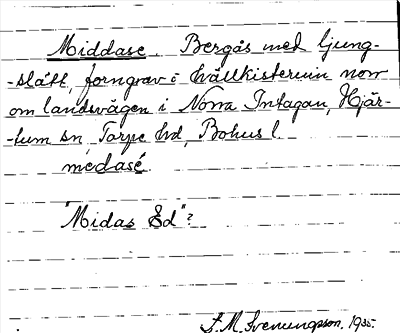 Middase. Bergås med ljung-
-slätt, forngrav i hällkisteruin norr
om landsvägen i Norra Intagan, Hjär-
-tum sn, Torpe hd, Bohus l.
medasé.
"Midas Ed"?
S. M. Svenungsson, 1935-